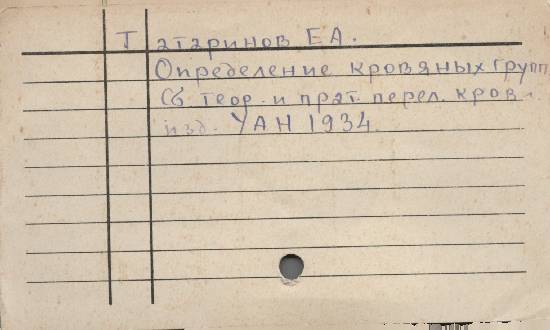 Татаринов Е А.
Определение кровяных групп
Сб теор. и прат. перел. кров.
изд. УАН 1934.